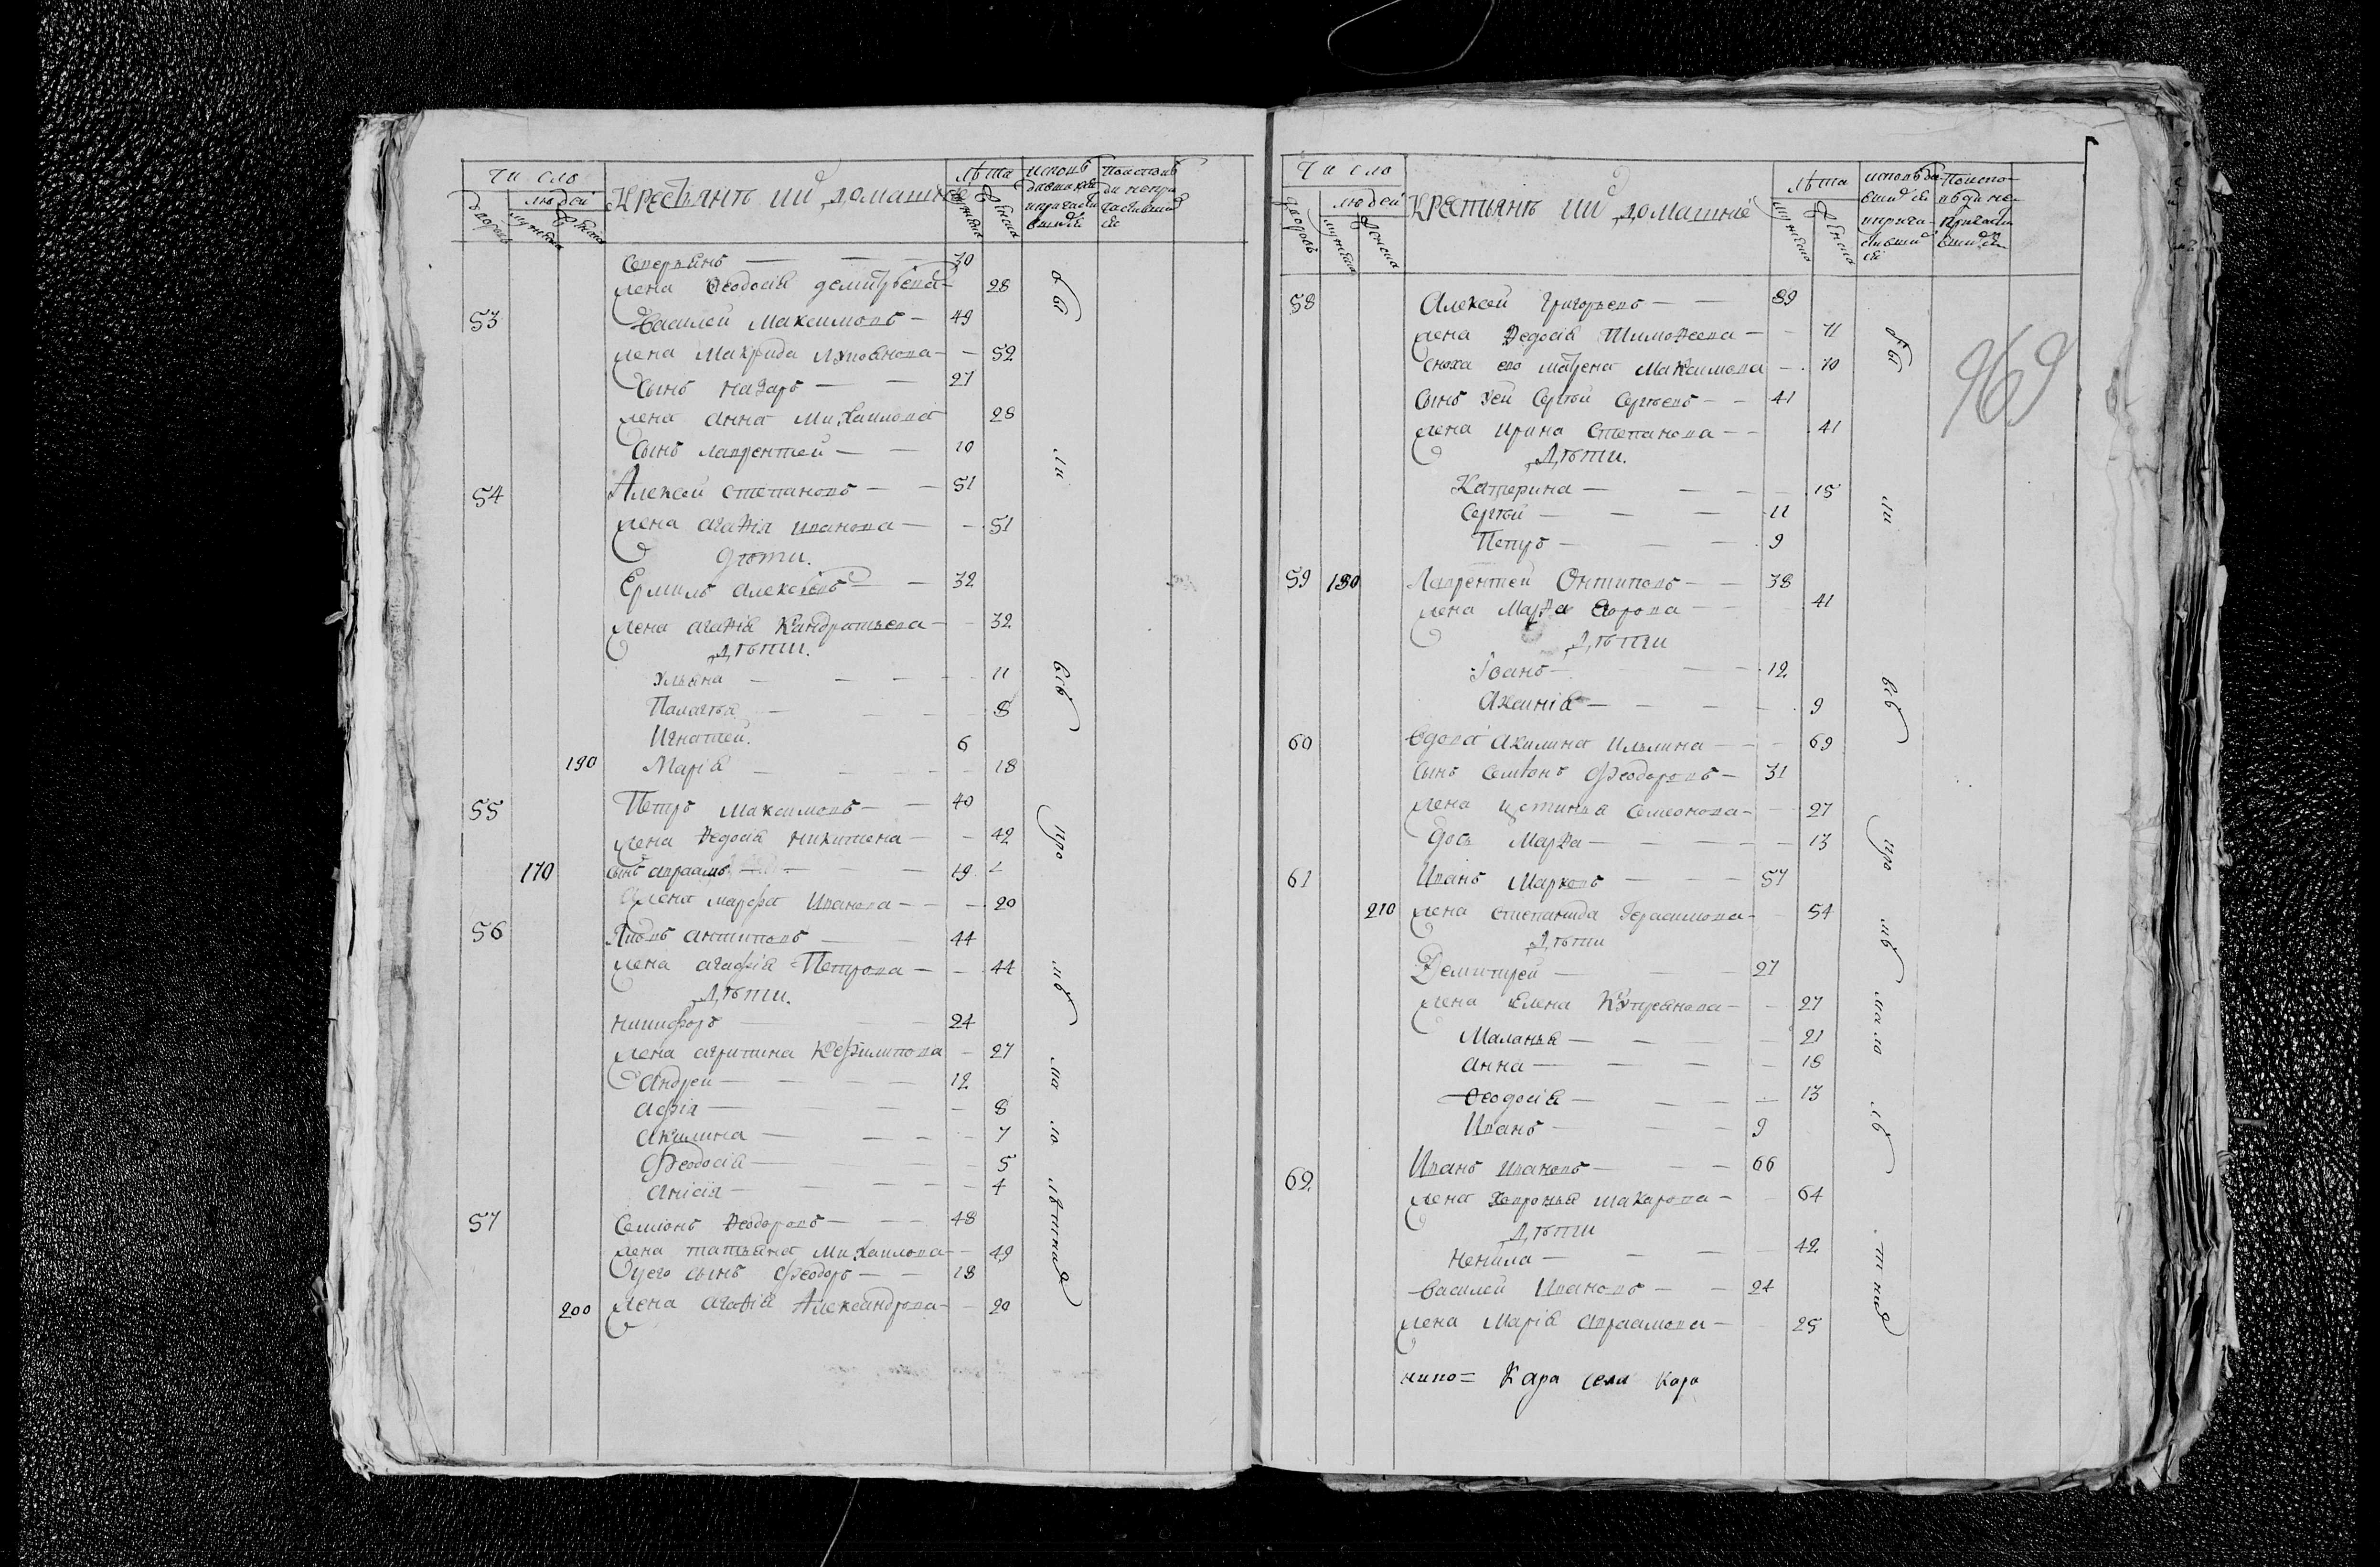 Число
людей
дворовъ
мужеска
женска
Крестьянъ ни домашніе
лѣта
мужска
женска
Северьянъ 30
жена Ѳеодосія Демитрѣева 28
53 Василей Максимовъ 49
жена Макрида 52
сынъ Назаръ 27
жена Анна Михаилова 28
сынъ Лаврентей 10
54 Алексей Степановъ 51
жена Агаѳія Иванова 51
дѣти.
Ермилъ Алексѣевъ 32
жена Агаѳія Кандратьева 32
дѣти.
Ульяна 11
Палагѣя 8
Игнатей. 6
190 Марія 18
55 Петръ Максимовъ 40
жена Ѳедосія Никитена 42
170 сынъ Авраамъ 19
жена Марфа Иванова 20
56 Яковъ Антиповъ 44
жена Агафія Петрова 44
дѣти.
Никифоръ 24
жена Агрипина 27
Андрей 12
Афія 8
Акилина 7
Феодосія 5
Анісія 4
57 Семіонъ Ѳеодоровъ 48
жена Татьяна Михаилова 49
у него сынъ Феодоръ 18
200 жена Агаѳія Александрова 20
о бы
ли
всѣ
про
шѣ
ма
ло
лѣтния
Число
людей
дворовъ
мужеска
женска
Крестьянъ ни домашніе
лѣта
мужеска
женска
969
58 Алексей Григорьевъ 89
жена Ѳедосія Тимоѳеева 71
сноха его Матрена Максимова 70
сынъ Сергей Сергѣевъ 41
жена Ирина Степанова 41
Дѣти.
Катерина 15
Сергѣй 11
Петръ 9
59 180 Лаврентей Онтиповъ 38
жена Марѳа 41
Дѣти
Іванъ 12
Аксинія 9
60 вдова Акилина Ильина 69
сынъ Семіонъ Феодоровъ 31
жена Устинья Семеонова 27
дочь Марѳа 13
61 Иванъ Марковъ 57
210 жена Степанида Герасимова 54
Дѣти
Демитрей 27
жена Елена Купреанова 27
Маланья 21
Анна 18
Ѳеодосія 13
Иванъ 9
62 Иванъ Ивановъ 66
жена Хавронья Макарова 64
Дѣти
Ненила 42
Василей Ивановъ 24
жена Марія Авраамова 25
нико= Кара села Кара
о бы
ли
всѣ
про
шѣ
мало
лѣ
тния